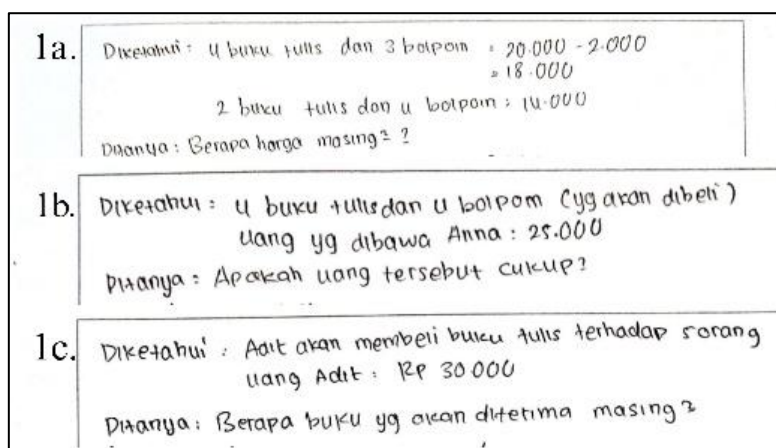 1a. Diketahui : 4 buku tulis dan 3 bolpoin : 20.000 - 2.000
= 18.000
2 buku tulis dan 4 bolpoin : 14.000
Ditanya : Berapa harga masing² ?
1b. Diketahui : 4 buku tulis dan 4 bolpoin (yg akan dibeli)
Uang yg dibawa Anna : 25.000
Ditanya : Apakah uang tersebut cukup?
1c. Diketahui : Adit akan membeli buku tulis terhadap sorang
Uang Adit : Rp 30.000
Ditanya : Berapa buku yg akan diterima masing²